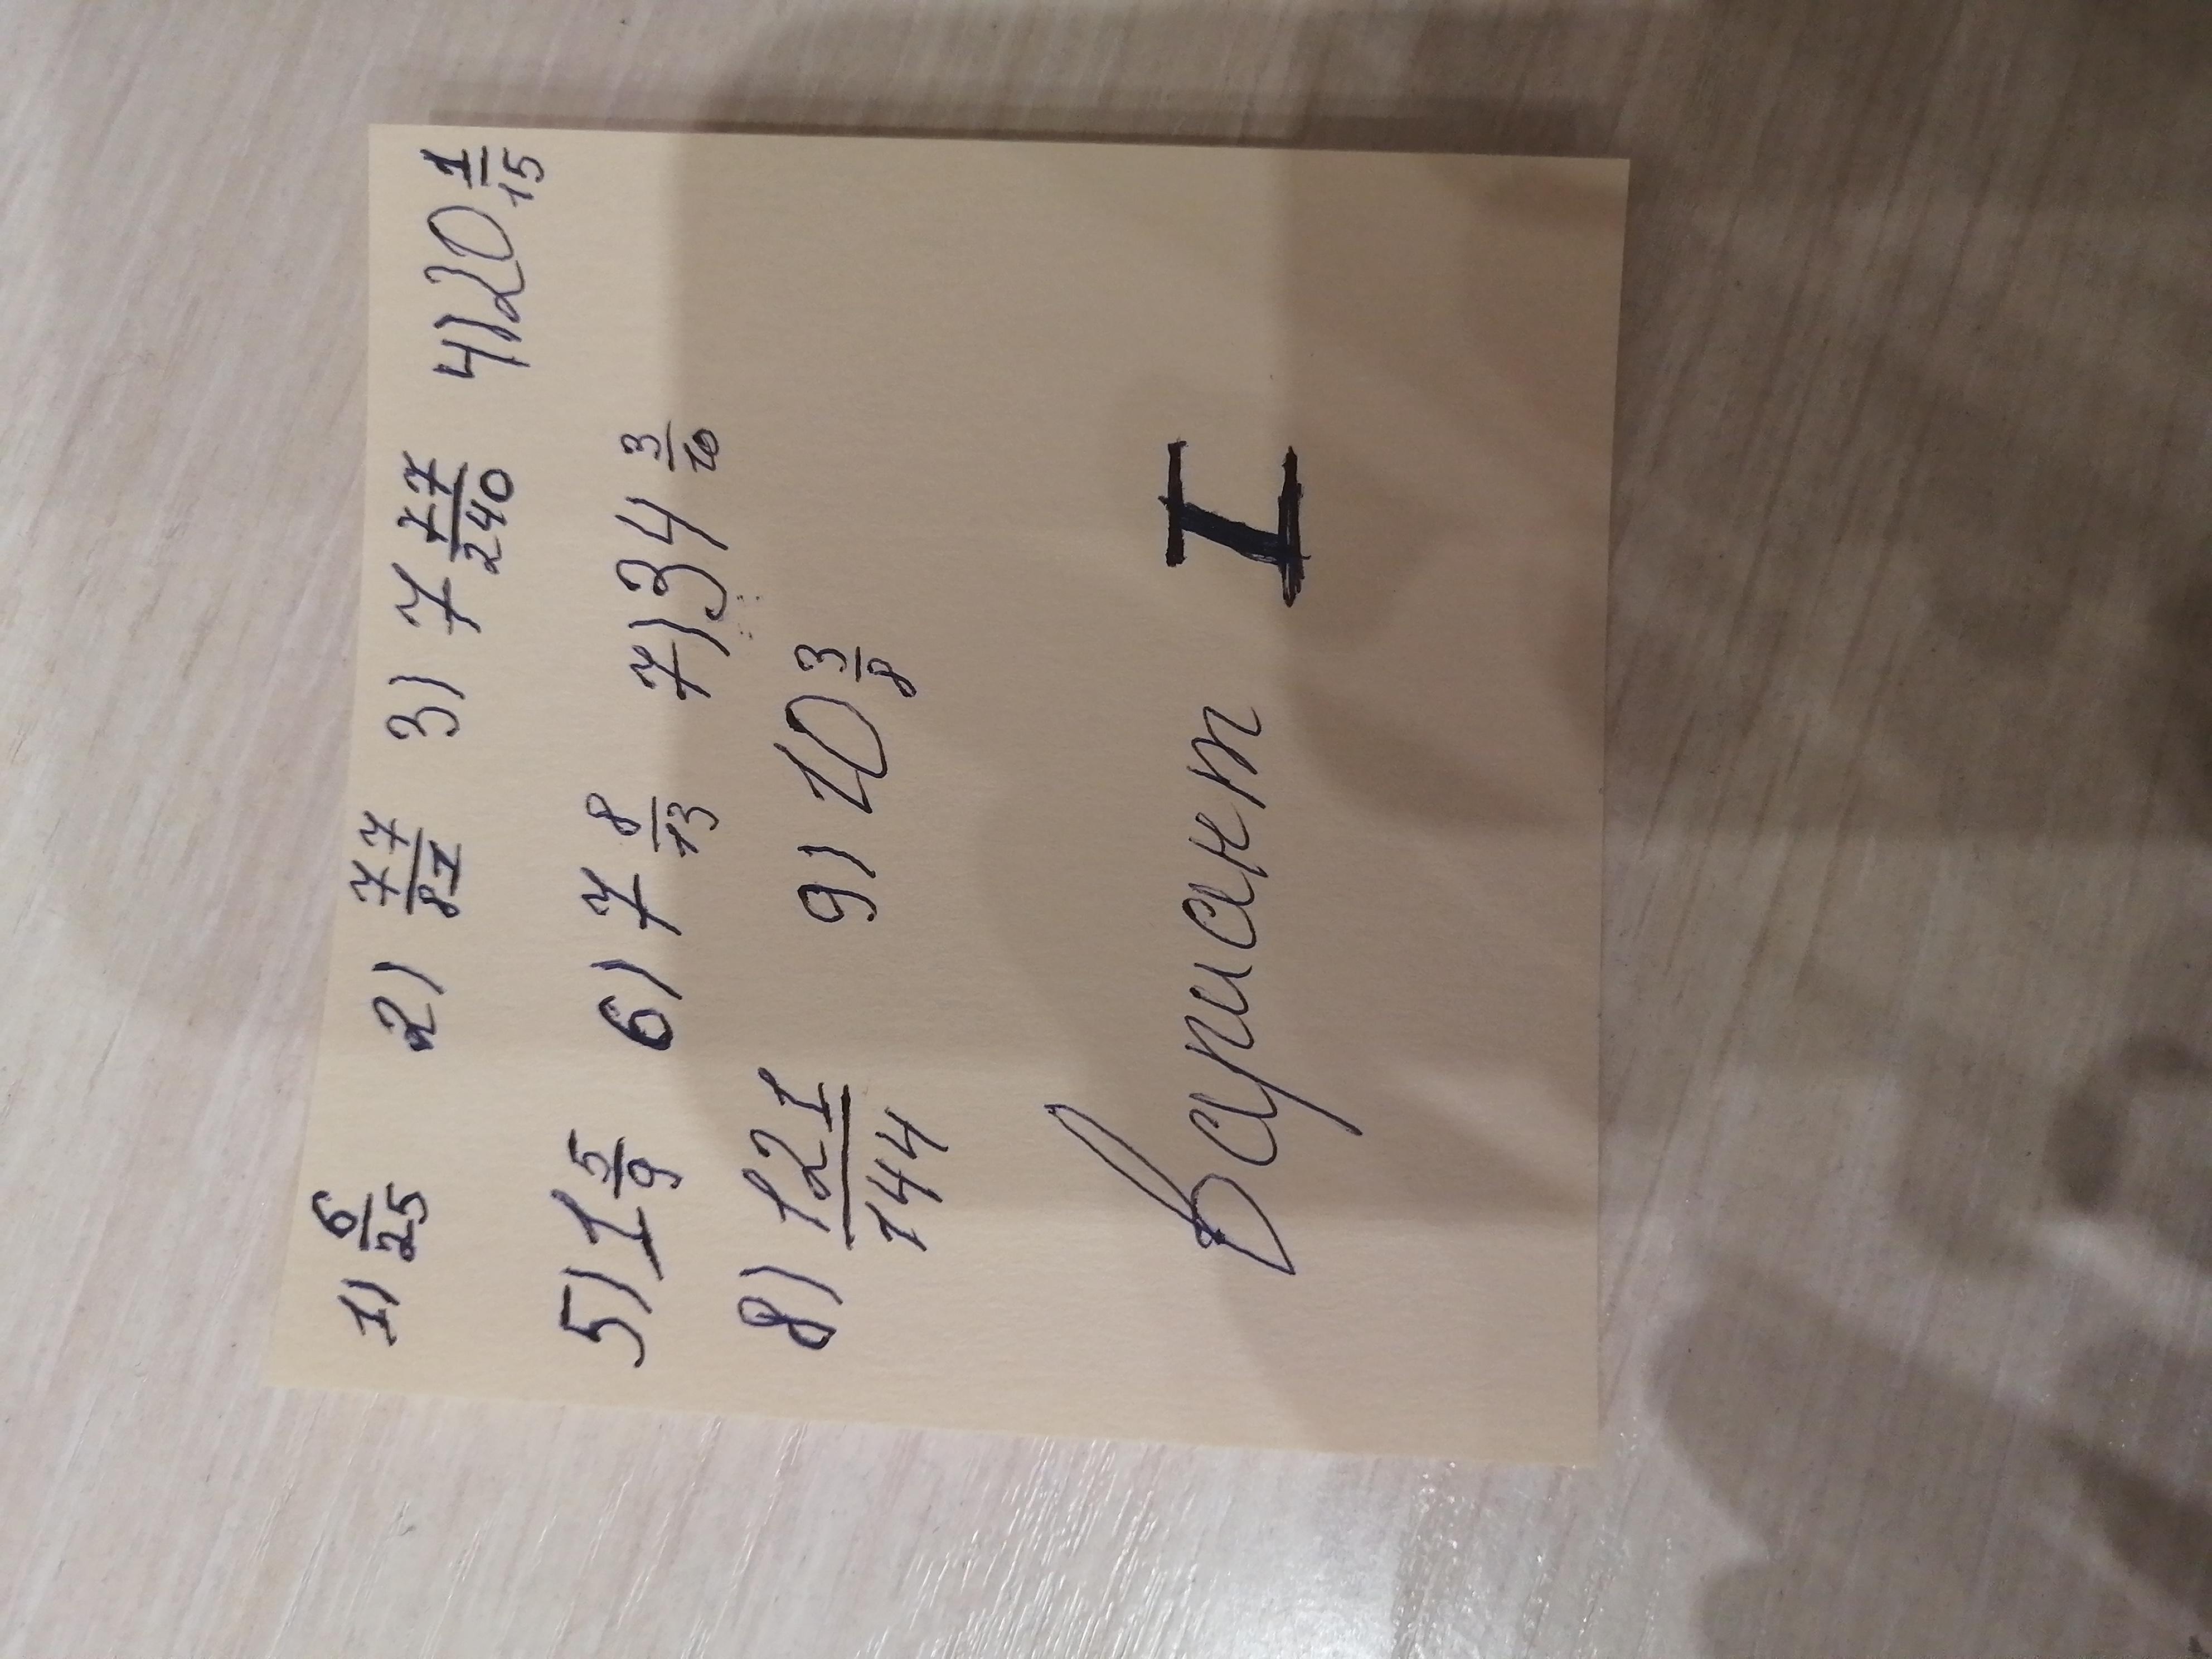 1) 6/25 2) 77/81 3) 7 77/240 4) 20 1/15
5) 1 5/9 6) 7 8/13 7) 34 3/10
8) 121/144 9) 10 3/8
Вариант I